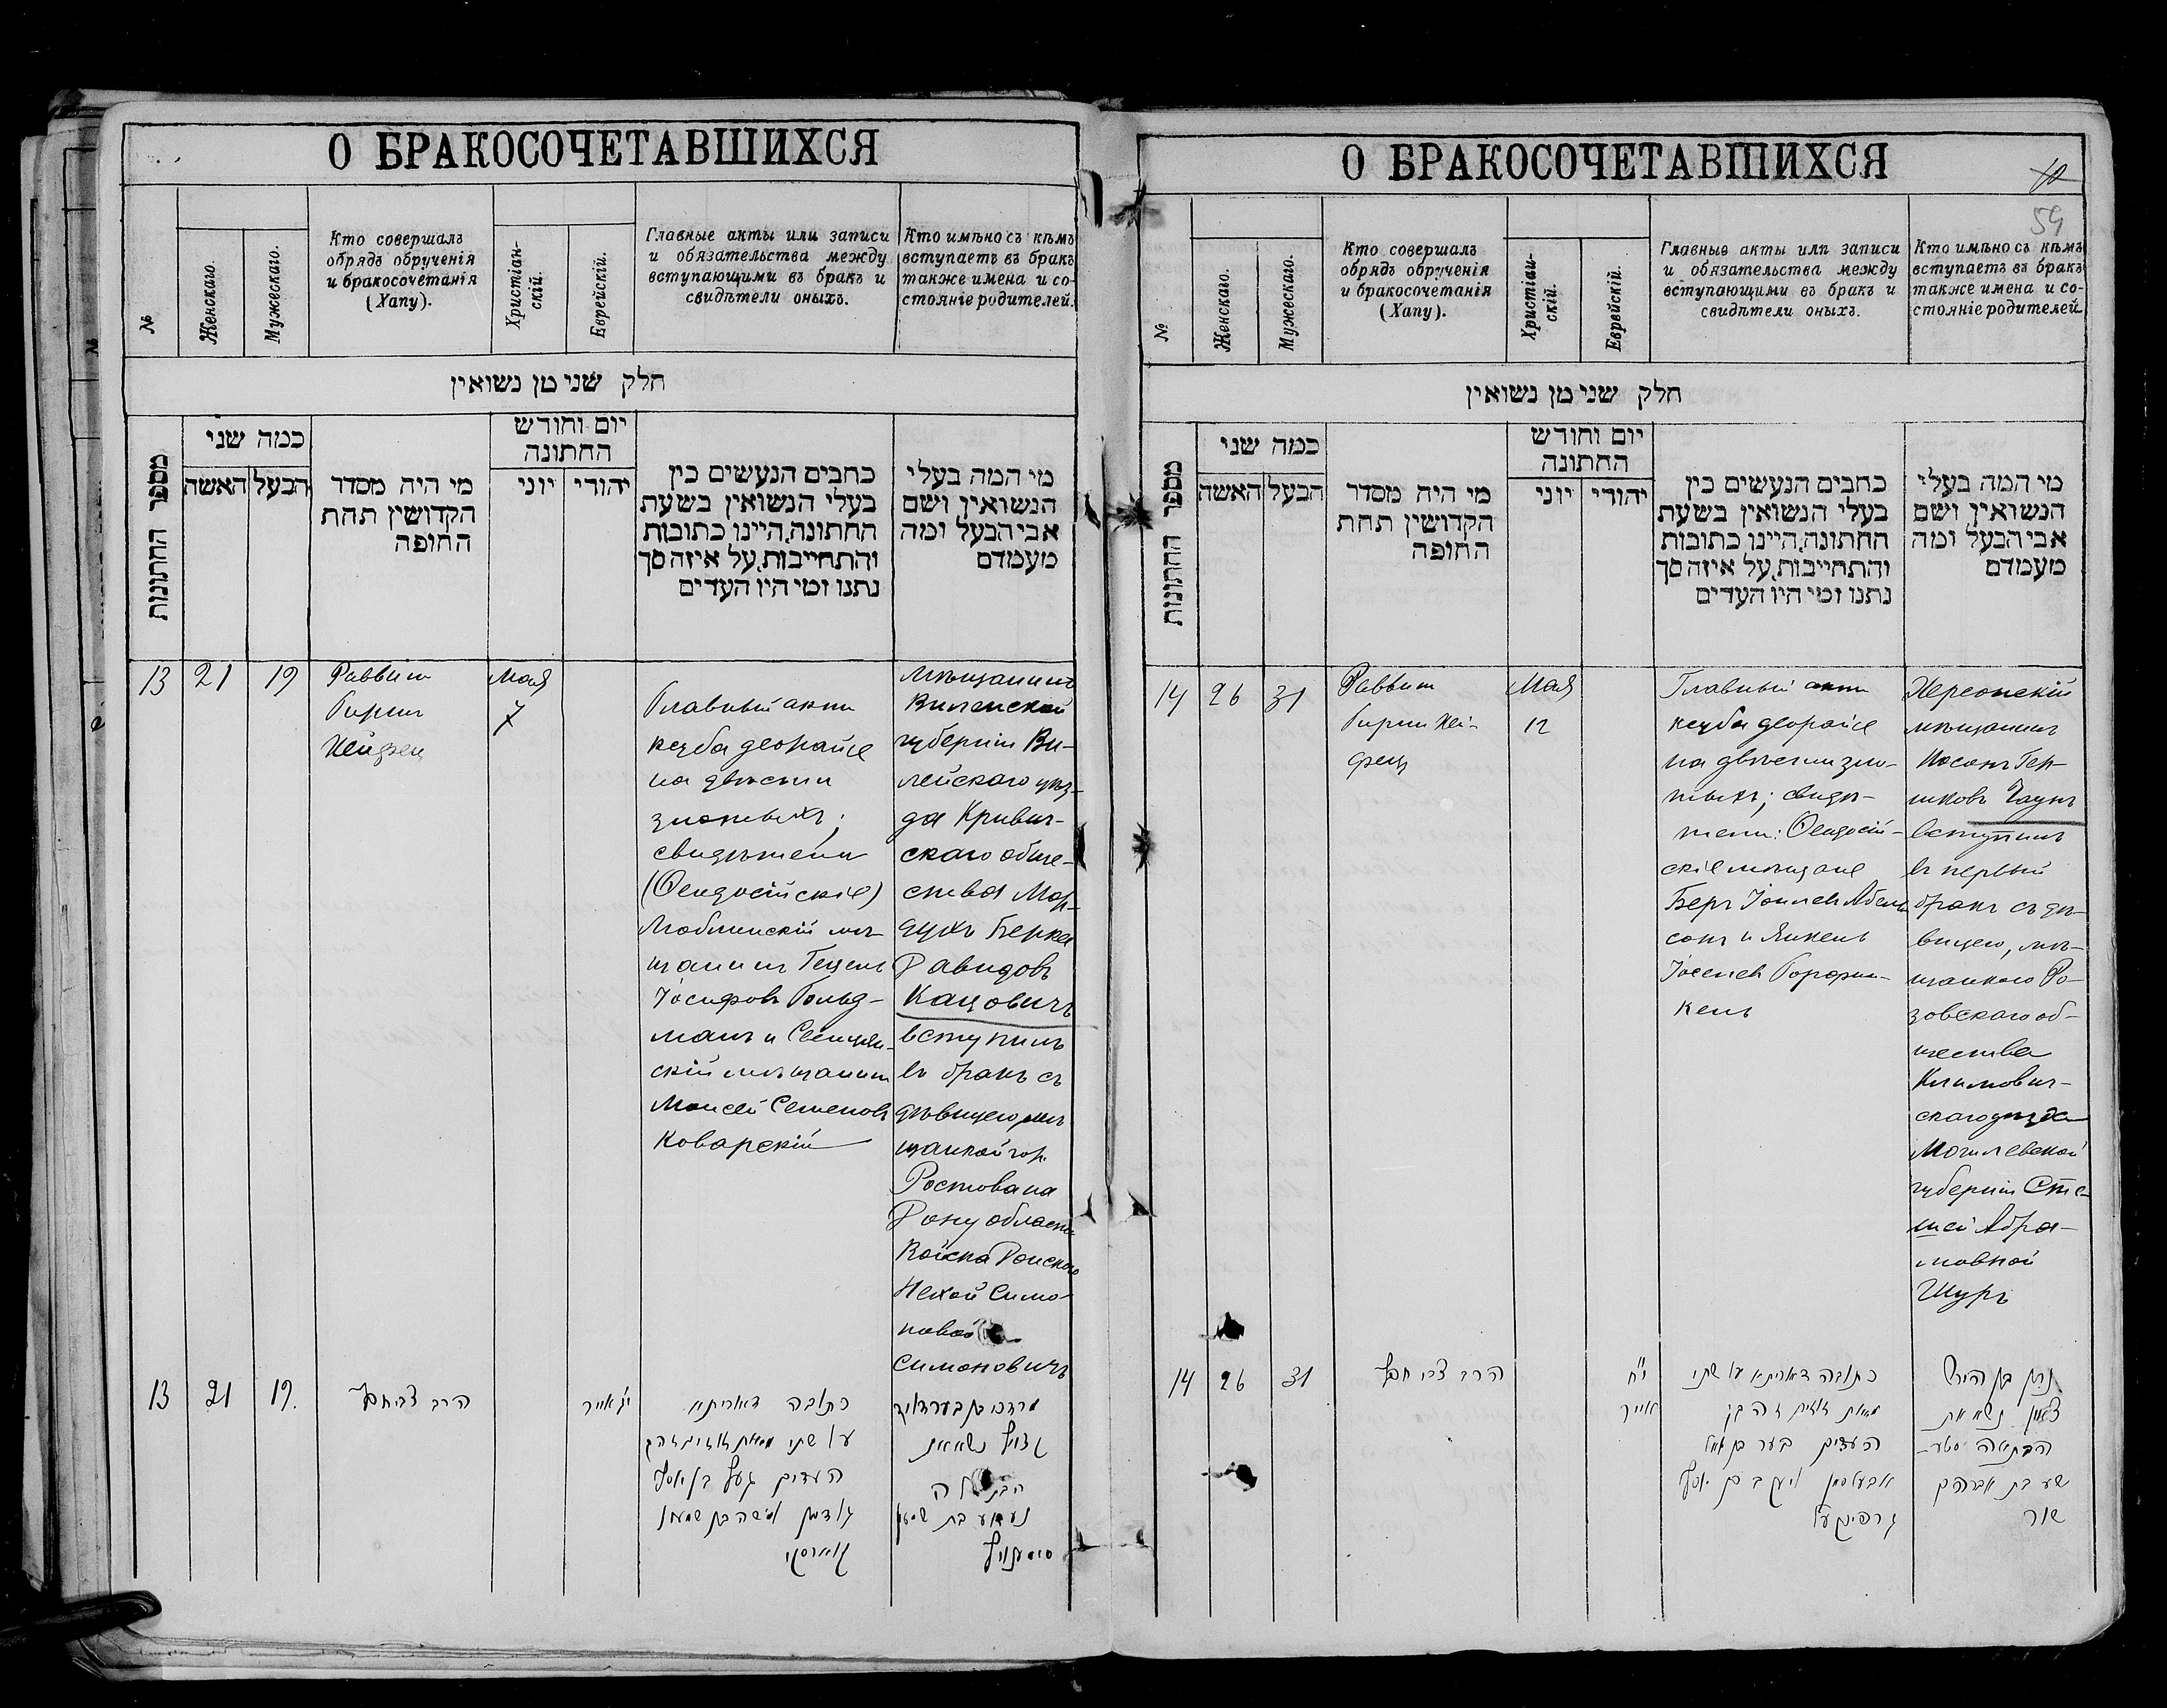 О БРАКОСОЧЕТАВШИХСЯ
№
Женскаго.
Мужескаго.
Кто совершалъ
обрядъ обрученія
и бракосочетанія
(Хапу).
Христіан-
скій.
Еврейскій.
Главные акты или записи
и обязательства между
вступающими въ бракъ и
свидѣтели оныхъ.
Кто имѣно съ кѣмъ
вступаетъ въ бракъ
также имена и со-
стояніе родителей.
חלק שני מן נשואין
מספר החתונות
כמה שני
האשה
הבעל
מי היה מסדר
הקדושין תחת
החופה
יום וחודש
החתונה
יוני
יהודי
כתבים הנעשים בין
בעלי הנשואין בשעת
החתונה, היינו כתובות
והתחייבות, על איזה סך
נתנו ומי היו העדים
מי המה בעלי
הנשואין ושם
אבי הבעל ומה
מעמדם
13
21
19
Раввин
Гирш
Хейфец
Мая
7
Главный актъ
кцуба деорайсе
на двѣсти
злотыхъ;
свидѣтели
(Ѳеодосійскіе)
Люблинскій мѣ-
щанинъ Гецель
Іосифовъ Гольд-
манъ и Свенцян-
скій мѣщанинъ
Моисей Семеновъ
Коварскій
Мѣщанинъ
Виленской
губерніи Ви-
лейскаго уѣз-
да Кривич-
скаго обще-
ства Мор-
духъ Берка
Давидовъ
Кацовичъ
вступилъ
въ бракъ съ
дѣвицею мѣ-
щанкой гор.
Ростова на
Дону области
Войска Донского
Нехой Симо-
новой
Симоновичъ
13
21
19.
הרב צבי חפץ
י"ג אייר
כתובה דאוריתא
על שתי מאות זוזים זהב
העדים געץ בן יוסף
גולדמן ומשה בן שמעון
קווארסקי
מרדכי בן בער דוד
קצוויץ נשא את
הבתולה
נעכע בת שמעון
סימענוויץ
О БРАКОСОЧЕТАВШИХСЯ
59
№
Женскаго.
Мужескаго.
Кто совершалъ
обрядъ обрученія
и бракосочетанія
(Хапу).
Христіан-
скій.
Еврейскій.
Главные акты или записи
и обязательства между
вступающими въ бракъ и
свидѣтели оныхъ.
Кто имѣно съ кѣмъ
вступаетъ въ бракъ
также имена и со-
стояніе родителей
חלק שני מן נשואין
מספר החתונות
כמה שני
האשה
הבעל
מי היה מסדר
הקדושין תחת
החופה
יום וחודש
החתונה
יוני
יהודי
כתבים הנעשים בין
בעלי הנשואין בשעת
החתונה, היינו כתובות
והתחייבות, על איזה סך
נתנו ומי היו העדים
מי המה בעלי
הנשואין ושם
אבי הבעל ומה
מעמדם
14
26
31
Раввин
Гирш Хей-
фец
Мая
12
Главный актъ
кцуба деорайсе
на двѣсти зло-
тыхъ; свидѣ-
тели: Ѳеодосій-
скіе мѣщане
Беръ Іоилевъ Абель-
сонъ и Янкель
Іоселевъ Горфин-
кель
Херсонскій
мѣщанинъ
Носонъ Гер-
шковъ
вступилъ
въ первый
бракъ съ дѣ-
вицею, мѣ-
щанкою Ро-
зовскаго об-
щества
Климович-
скаго уѣзда
Могилевской
губерніи Сте-
ший Абра-
мовной
Шуръ
14
26
31
הרב צבי חפץ
י"ח
אייר
כתובה דאוריתא על שתי
מאות זוזים זהב
העדים בער בן יואל
אבעלסאן ויעקב בן יוסף
גרפינקעל
נתן בן הירש
נשא את
הבתולה סטע-
שע בת אברהם
שור